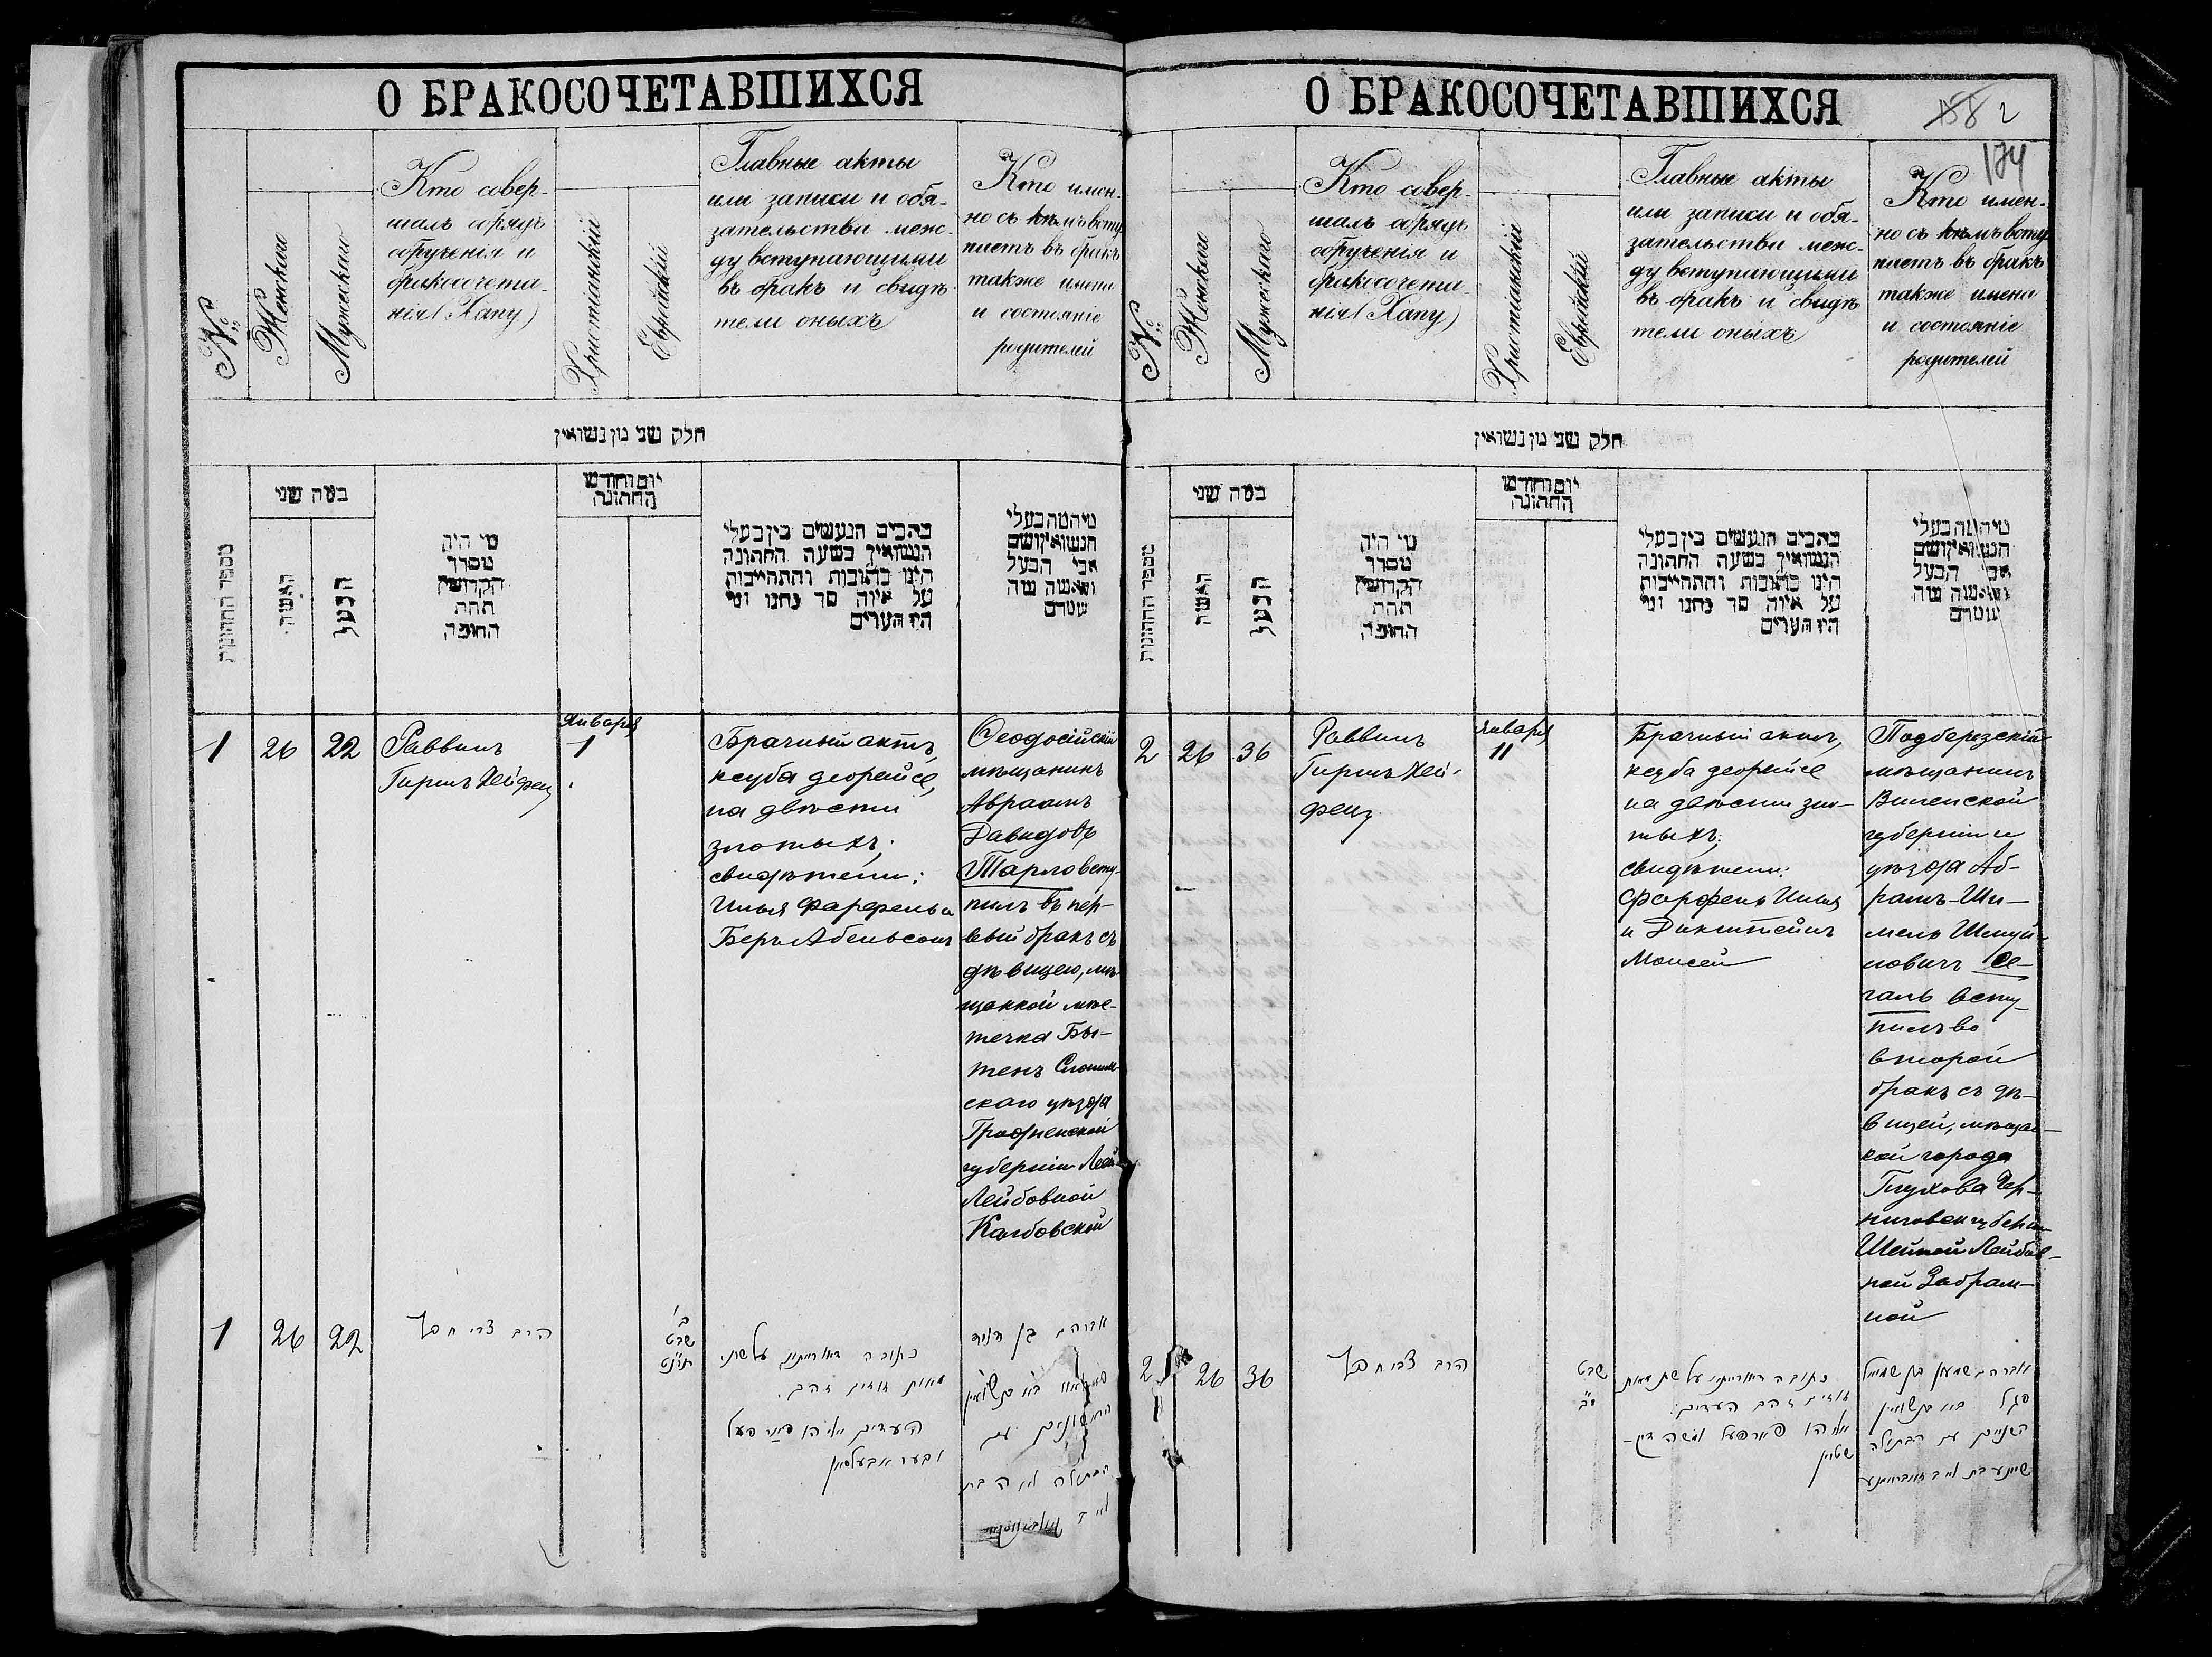 О БРАКОСОЧЕТАВШИХСЯ
№
Женскаго
Мужескаго
Кто совер-
шалъ обрядъ
обрученія и
бракосочета-
нія (Хапу)
Христіанскій
Еврейскій
Главные акты
или записи и обя-
зательства меж-
ду вступающими
въ бракъ и свидѣ-
тели оныхъ
Кто имен-
но съ кѣмъ всту
паетъ въ бракъ
также имена
и состояніе
родителей
חלק שני מן נשואין
מספר החתונות
כמה שני
האשה
הבעל
מי היה
מסדר
הקדושין
תחת
החופה
יום וחודש
החתונה
כתבים הנעשים בין בעלי
הנשואין בשעת החתונה
היינו כתובות והתחייבות
על איזה סך נתנו ומי
היו העדים
מי המה בעלי
הנשואין ושם
אבי הבעל
והאשה מה
שמם
1
26
22
Раввинъ
Гиршъ Хейфец
Января
1
Брачный актъ,
ксуба деорейсе,
на двѣсти
злотыхъ;
свидѣтели:
Илья Фарфель и
Беръ Абельсонъ
Ѳеодосійскій
мѣщанинъ
Авраамъ
Давидовъ
Тарло всту-
пилъ въ пер-
вый бракъ съ
дѣвицею, мѣ
щанкой мѣс-
течка Бы-
тень Слоним
скаго уѣзда
Гродненской
губерніи Леей
Лейбовной
Колбовской
1
26
22
הרב צבי חפץ
ב'
שבט
תרנ"ט
כתובה דאורייתא על שתי
מאות זוזים זהב.
העדים אליהו פארפעל
ובער אבעלסאן
אברהם בן דוד
הראשונים עם
הבתולה לאה בת
О БРАКОСОЧЕТАВШИХСЯ
158 2
174
№
Женскаго
Мужескаго
Кто совер-
шалъ обрядъ
обрученія и
бракосочета-
нія (Хапу)
Христіанскій
Еврейскій
Главные акты
или записи и обя-
зательства меж-
ду вступающими
въ бракъ и свидѣ
тели оныхъ
Кто имен-
но съ кѣмъ всту
паетъ въ бракъ
также имена
и состояніе
родителей
חלק שני מן נשואין
מספר החתונות
כמה שני
האשה
הבעל
מי היה
מסדר
הקדושין
תחת
החופה
יום וחודש
החתונה
כתבים הנעשים בין בעלי
הנשואין בשעת החתונה
היינו כתובות והתחייבות
על איזה סך נתנו ומי
היו העדים
מי המה בעלי
הנשואין ושם
אבי הבעל
והאשה מה
שמם
2
26
36
Раввинъ
Гиршъ Хей-
фецъ
Января
11
Брачный актъ,
ксуба деорейсе
на двѣсти зло-
тыхъ;
свидѣтели:
Фарфель Илья
и Дикштейнъ
Моисей
Подберезскій
мѣщанинъ
Виленской
губерніи и
уѣзда Аб-
рамъ-Ши-
мель Шмуй-
ловичъ Се-
галь всту-
пилъ во
второй
бракъ съ дѣ-
вицей, мѣщан-
кой города
Глухова Чер-
ниговск губерніи
Шейной Лейбов-
ной Забраж-
ной
2
26
36
הרב צבי חפץ
שבט
י"ב
כתובה דאורייתא על שתי מאות
זוזים זהב העדים:
אליהו פארפעל ומשה דיק-
שטיין
אברהם שמעון בן שמואל
סגל באו בנשואין
השניים עם הבתולה
שיינע בת לייב זאבראזשנע